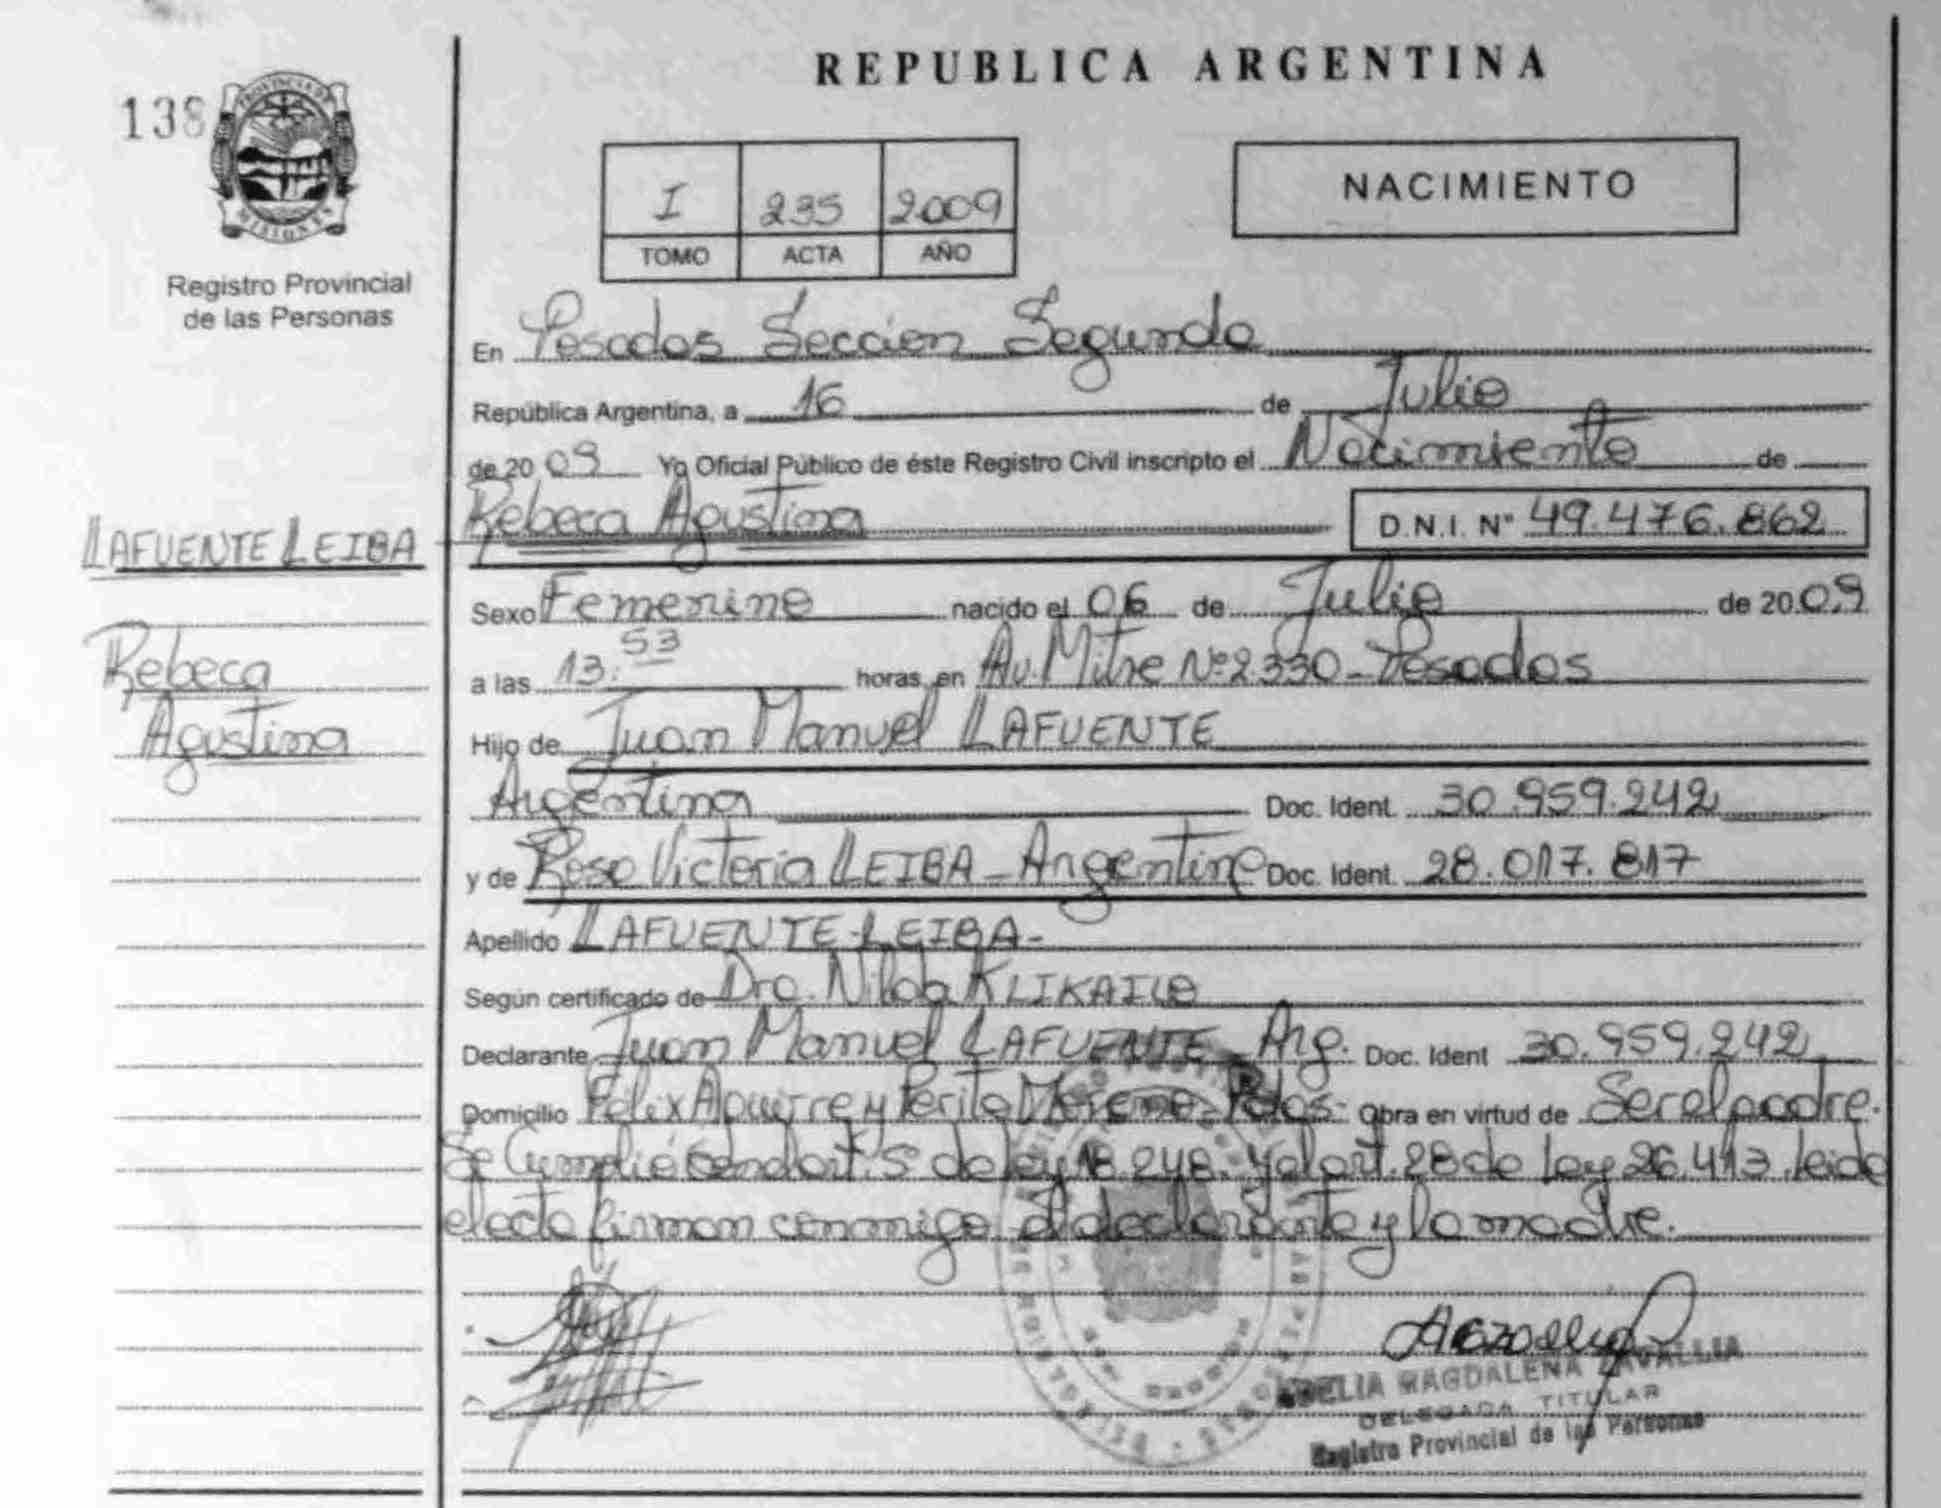 REPUBLICA ARGENTINA
138
PROVINCIA DE
MISIONES
Registro Provincial
de las Personas
I 235 2009
TOMO ACTA AÑO
NACIMIENTO
En Posadas Sección Segunda
República Argentina, a 16 de Julio
de 2009 Yo Oficial Público de éste Registro Civil inscripto el Nacimiento de
Rebeca Agustina D.N.I. Nº 49.476.862
LAFUENTE LEIBA
Rebeca
Agustina
Sexo Femenino nacido el 06 de Julio de 2009
a las 13:53 horas, en Av. Mitre Nº 2.330 - Posadas
Hijo de Juan Manuel LAFUENTE
Argentina Doc. Ident. 30.959.242
y de Rosa Victoria LEIBA - Argentina Doc. Ident. 28.017.817
Apellido LAFUENTE LEIBA -
Según certificado de Dra. Nilda
Declarante Juan Manuel LAFUENTE - Arg. Doc. Ident 30.959.242
Domicilio Felix Aguirre y Perito Moreno - Pdas - Obra en virtud de Ser el padre.
Se Cumplió con el art. 5 de ley 18.248. y el art. 28 de Ley 26.413. leida
el acta firman conmigo el declarante y la madre.
ADELIA MAGDALENA ZAVALLIA
DELEGADA TITULAR
Registro Provincial de las Personas